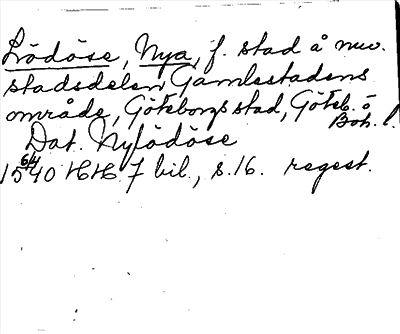 Lödöse, Nya, f. stad å nuv.
stadsdelen Gamlestadens
område, Göteborgs stad, Göteb. o
Boh. l.
Dat. Nylödöse
1540 6/4 HH 7 bil., s. 16. regest.